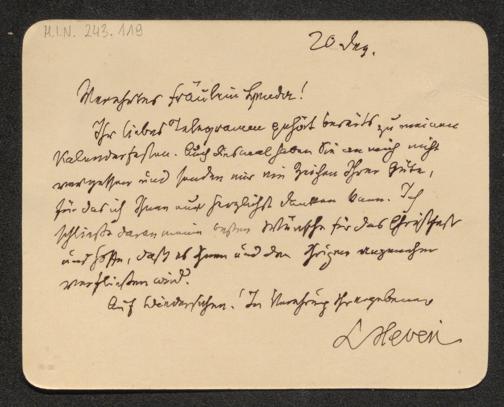 H.I.N. 243.119
20. Dez.
Verehrtes Fräulein !
Ihr liebes Telegramm gehört bereits zu meinen
Kalenderfesten. Auch diesmal haben Sie an mich nicht
vergessen und senden mir ein Zeichen Ihrer Güte,
für das ich Ihnen nur herzlichst danken kann. Ich
schließe daran meine besten Wünsche für das Christfest
und hoffe, daß es Ihnen und den Ihrigen angenehm
verfließen wird.
Auf Wiedersehen! In Verehrung Ihr ergebener
L Hevesi